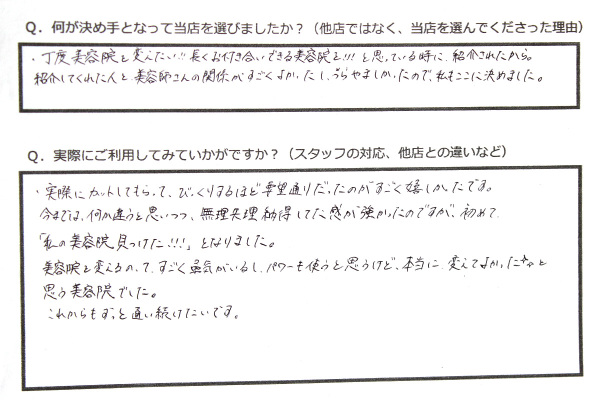 Q. 何が決め手となって当店を選びましたか?(他店ではなく、当店を選んでくださった理由)
・丁度美容院を変えたい!!長くお付き合いできる美容院を!!!と思っている時に、紹介されたから。
紹介してくれた人と美容師さんの関係がすごくよかったし、うらやましかったので、私もここに決めました。
Q. 実際にご利用してみていかがですか?(スタッフの対応、他店との違いなど)
・実際にカットしてもらって、びっくりするほど要望通りだったのがすごく嬉しかったです。
今までは、何か違うと思いつつ、無理矢理納得してた感が強かったのですが、初めて
「私の美容院見つけた!!!」となりました。
美容院を変えるのって、すごく勇気がいるし、パワーも使うと思うけど、本当に変えてよかったなぁと
思う美容院でした。
これからもずっと通い続けたいです。